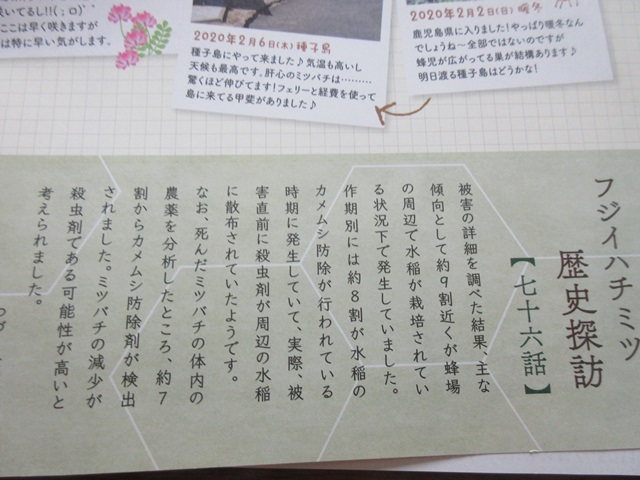 いてるし!!(; ロ)''
ここは早く咲きますが
は特に早い気がします。
2020年2月6日(木)種子島
種子島にやって来ました♪気温も高いし
天候も最高です。肝心のミツバチは………
驚くほど伸びてます!フェリーと経費を使って
島に来てる甲斐がありました♪
2020年2月2日(日)暖冬
鹿児島県に入りました!やっぱり暖冬なん
でしょうね〜全部ではないのですが
蜂児が広がってる巣が結構あります♪
明日渡る種子島はどうかな!
フジイハチミツ
歴史探訪
【七十六話】
被害の詳細を調べた結果、主な
傾向として約9割近くが蜂場
の周辺で水稲が栽培されてい
る状況下で発生していました。
作期別には約8割が水稲の
カメムシ防除が行われている
時期に発生していて、実際、被
害直前に殺虫剤が周辺の水稲
に散布されていたようです。
なお、死んだミツバチの体内の
農薬を分析したところ、約7
割からカメムシ防除剤が検出
されました。ミツバチの減少が
殺虫剤である可能性が高いと
考えられました。
つづ